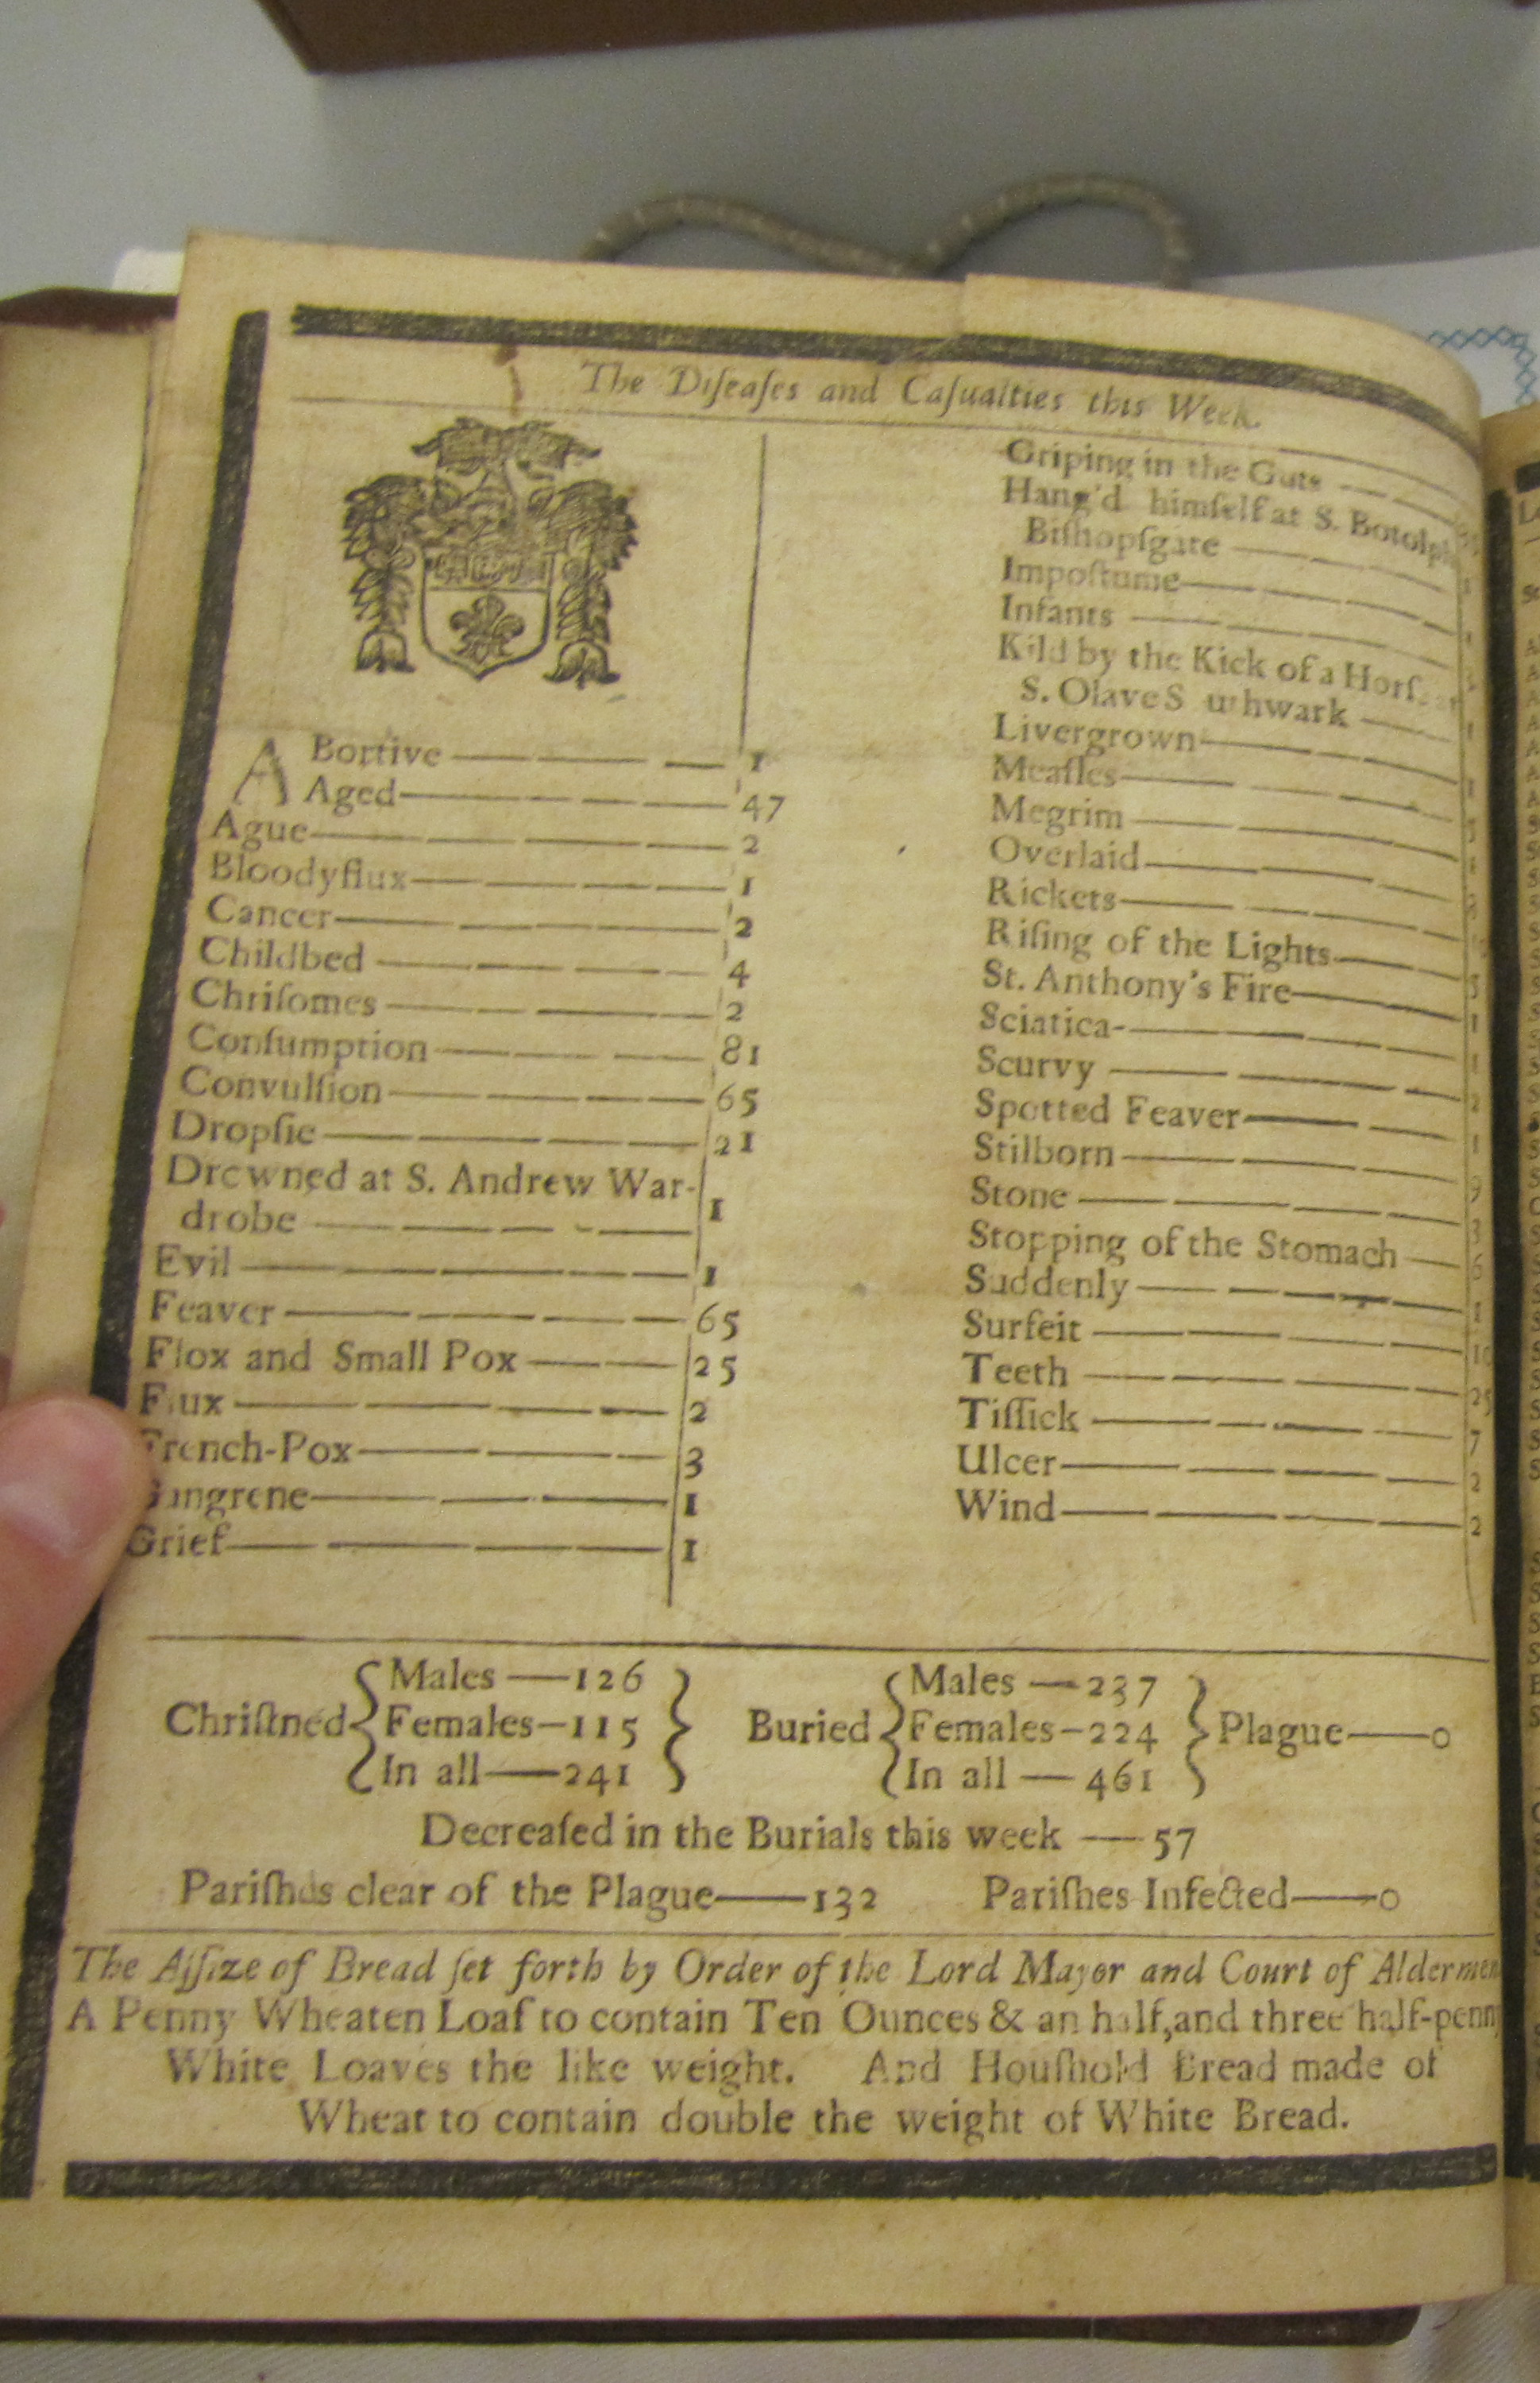 The Diſeaſes and Caſualties this Week.
ABortive — 1
Aged — 47
Ague — 2
Bloodyflux — 1
Cancer — 2
Childbed — 4
Chriſomes — 2
Conſumption — 81
Convulſion — 65
Dropſie — 21
Drowned at S. Andrew War-
drobe — 1
Evil — 1
Feaver — 65
Flox and Small Pox — 25
Flux — 2
French-Pox — 3
Gangrene — 1
Grief — 1
Griping in the Guts —
Hang'd himſelf at S. Botolph
Biſhopſgate —
Impoſtume —
Infants —
Kild by the Kick of a Horſe at
S. Olave Southwark — 1
Livergrown — 1
Meaſles —
Megrim — 1
Overlaid —
Rickets —
Riſing of the Lights —
St. Anthony's Fire — 1
Sciatica — 1
Scurvy — 2
Spotted Feaver — 1
Stilborn — 9
Stone — 3
Stopping of the Stomach — 6
Suddenly — 1
Surfeit —
Teeth — 25
Tiſſick — 7
Ulcer — 2
Wind — 2
Chriſtned { Males — 126
Females — 115
In all — 241 }
Buried { Males — 237
Females — 224
In all — 461 } Plague — 0
Decreaſed in the Burials this week — 57
Pariſhes clear of the Plague — 132 Pariſhes Infected — 0
The Aſſize of Bread ſet forth by Order of the Lord Mayor and Court of Aldermen
A Penny Wheaten Loaf to contain Ten Ounces & an half, and three half-penny
White Loaves the like weight. And Houſhold Bread made of
Wheat to contain double the weight of White Bread.